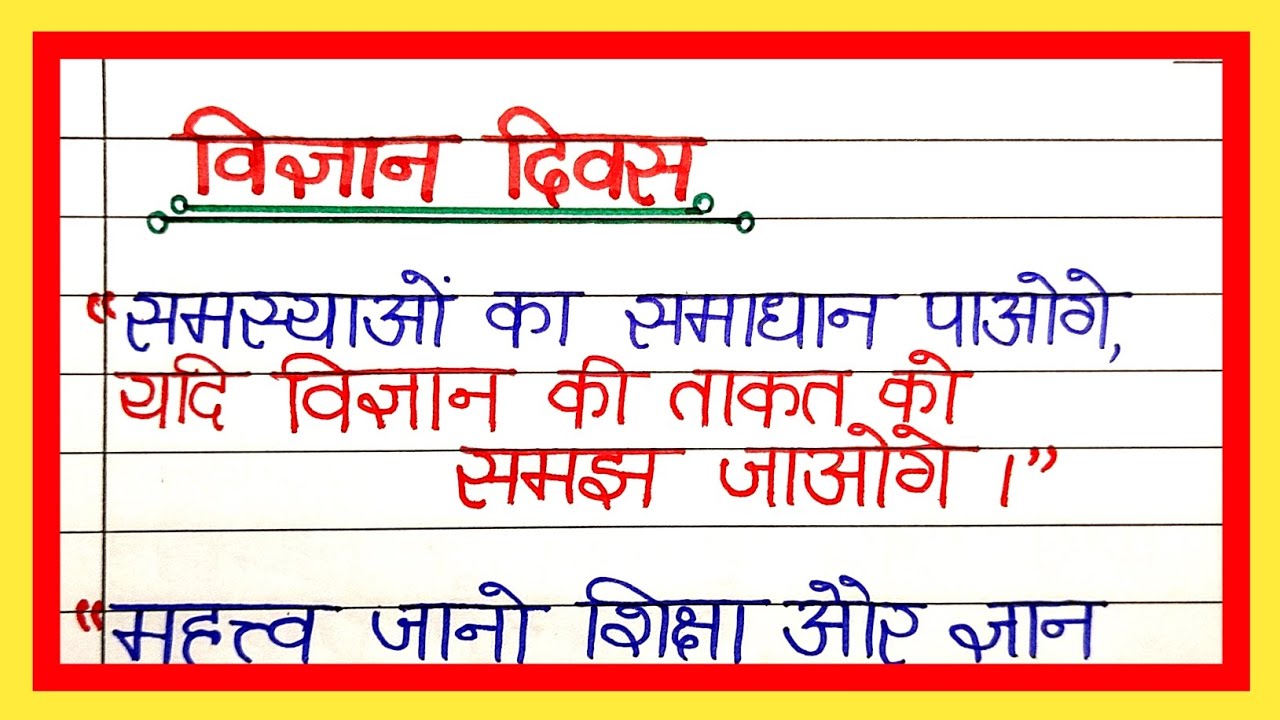 विज्ञान दिवस
“समस्याओं का समाधान पाओगे,
यदि विज्ञान की ताकत को
समझ जाओगे ।”
“महत्त्व जानो शिक्षा और ज्ञान